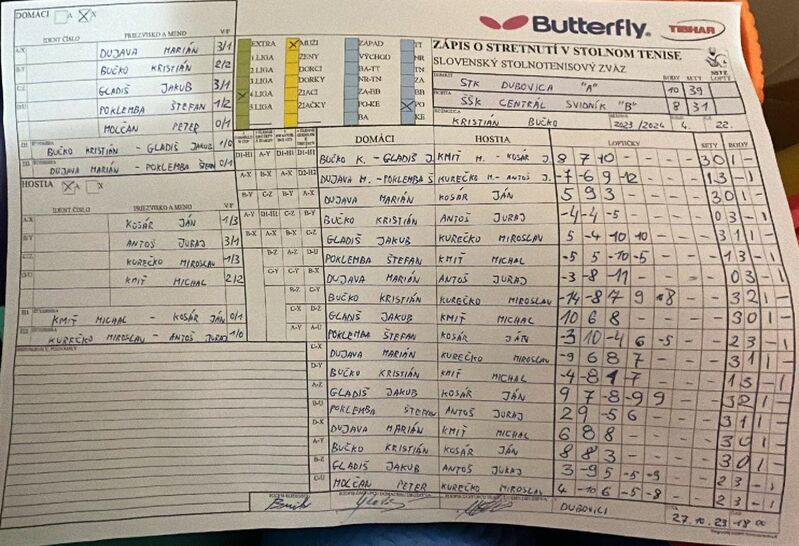 DOMÁCI A X
IDENT. ČÍSLO PRIEZVISKO A MENO V/P
A-X DUJAVA MARIÁN 3/1
B-Y BUČKO KRISTIÁN 2/2
C-Z GLADIŠ JAKUB 3/1
POKLEMBA ŠTEFAN 1/2
MOLČAN PETER 0/1
BUČKO KRISTIÁN - GLADIŠ JAKUB 1/0
DUJAVA MARIÁN - POKLEMBA ŠTEFAN 0/1
HOSTIA A X
IDENT. ČÍSLO PRIEZVISKO A MENO V/P
A-X KOSÁR JÁN 1/3
B-Y ANTOŠ JURAJ 3/1
KUREČKO MIROSLAV 1/3
KMIŤ MICHAL 2/2
KMIŤ MICHAL - KOSÁR JÁN 0/1
KUREČKO MIROSLAV - ANTOŠ JURAJ 1/0
EXTRA MUŽI ZÁPAD TT
1.LIGA ŽENY VÝCHOD NR
2.LIGA DORCI BA-TT TN
3.LIGA DORKY NR-TN ZA
4.LIGA ŽIACI ZA-BB BB
5.LIGA ŽIAČKY PO-KE PO
BA KE
Butterfly TIBHAR
ZÁPIS O STRETNUTÍ V STOLNOM TENISE
SLOVENSKÝ STOLNOTENISOVÝ ZVÄZ
BODY SETY
STK DUBOVICA "A" 10 39
ŠŠK CENTRÁL SVIDNÍK "B" 8 31
KRISTIÁN BUČKO 2023/2024 4. 22
DOMÁCI HOSTIA LOPTIČKY SETY BODY
BUČKO K. - GLADIŠ J. KMIŤ M. - KOSÁR J. 8 7 10 - - 3 0 1 -
DUJAVA M. - POKLEMBA Š KUREČKO M. - ANTOŠ J. -7 -6 9 -12 - 1 3 - 1
DUJAVA MARIÁN KOSÁR JÁN 5 9 3 - - 3 0 1 -
BUČKO KRISTIÁN ANTOŠ JURAJ -4 -4 -5 - - 0 3 - 1
GLADIŠ JAKUB KUREČKO MIROSLAV 5 -4 10 10 - 3 1 1 -
POKLEMBA ŠTEFAN KMIŤ MICHAL -5 5 -10 -5 - 1 3 - 1
DUJAVA MARIÁN ANTOŠ JURAJ -3 -8 -11 - - 0 3 - 1
BUČKO KRISTIÁN KUREČKO MIROSLAV -14 -8 7 9 8 3 2 1 -
GLADIŠ JAKUB KMIŤ MICHAL 10 6 8 - - 3 0 1 -
POKLEMBA ŠTEFAN KOSÁR JÁN -3 10 -4 6 -5 2 3 - 1
DUJAVA MARIÁN KUREČKO MIROSLAV -9 6 8 7 - 3 1 1 -
BUČKO KRISTIÁN KMIŤ MICHAL 1 3 - 1
GLADIŠ JAKUB KOSÁR JÁN 9 7 -8 -9 9 3 2 1 -
POKLEMBA ŠTEFAN ANTOŠ JURAJ 2 9 -5 6 - 3 1 1 -
DUJAVA MARIÁN KMIŤ MICHAL 6 8 8 - - 3 0 1 -
BUČKO KRISTIÁN KOSÁR JÁN 8 8 3 - - 3 0 1 -
GLADIŠ JAKUB ANTOŠ JURAJ 3 -9 5 -5 -9 2 3 - 1
MOLČAN PETER KUREČKO MIROSLAV 4 -10 6 -5 -8 2 3 - 1
DUBOVICI 27.10.23 18 00